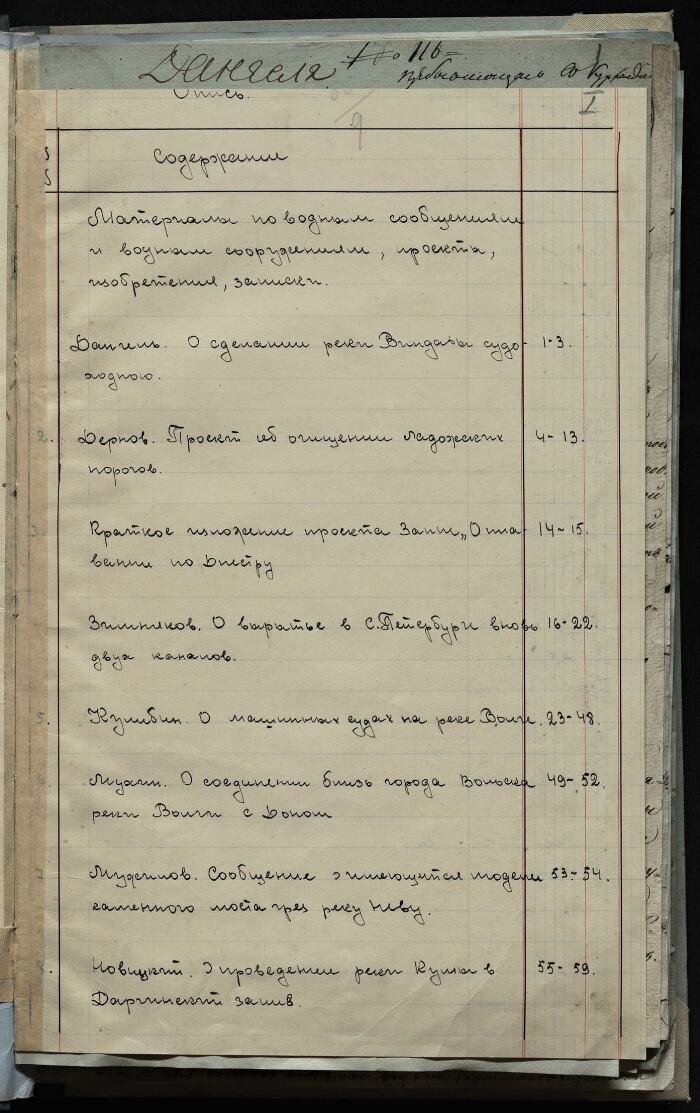 Дангеля № 116 = пребывающаго въ Курляндіи
Опись.
I
9
Содержание
Материалы по водным сообщениям
и водным сооружениям, проекты,
изобретения, записки.
Дангель. О сделании реки Виндавы судо- 1-3.
ходною.
2. Дернов. Проект об очищении Ладожских 4-13.
порогов.
3. Краткое изложение проекта Занте „О пла- 14-15.
вании по Днестру
Зимняков. О вырытье в С.Петербурге вновь 16-22.
двух каналов.
5. Кулибин. О машинных судах на реке Волге. 23-48.
6. Мухин. О соединении близь города Вольска 49-52.
реки Волги с Доном
7. Сообщение о имеющится модели 53-54.
каменного моста чрез реку Неву.
8. Новицкий. О проведении реки Кумы в 55-59.
залив.